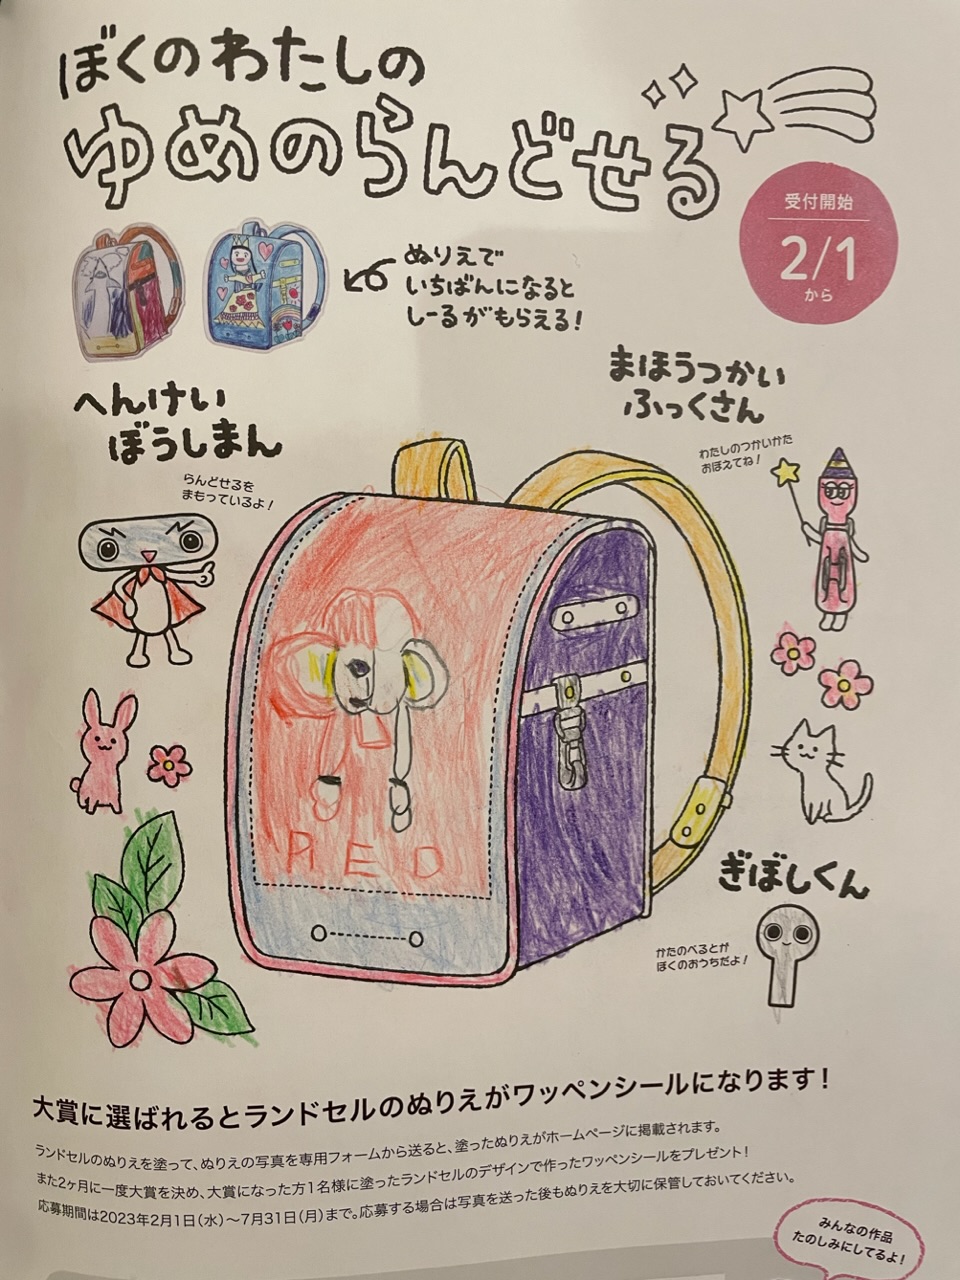 ぼくのわたしの
ゆめのらんどせる
受付開始
2/1
から
ぬりえで
いちばんになると
しーるがもらえる!
へんけい
ぼうしまん
らんどせるを
まもっているよ!
まほうつかい
ふっくさん
わたしのつかいかた
おぼえてね!
RED
ぎぼしくん
かたのべるとが
ぼくのおうちだよ!
大賞に選ばれるとランドセルのぬりえがワッペンシールになります!
ランドセルのぬりえを塗って、ぬりえの写真を専用フォームから送ると、塗ったぬりえがホームページに掲載されます。
また2ヶ月に一度大賞を決め、大賞になった方1名様に塗ったランドセルのデザインで作ったワッペンシールをプレゼント!
応募期間は2023年2月1日(水)〜7月31日(月)まで。応募する場合は写真を送った後もぬりえを大切に保管しておいてください。
みんなの作品
たのしみにしてるよ!